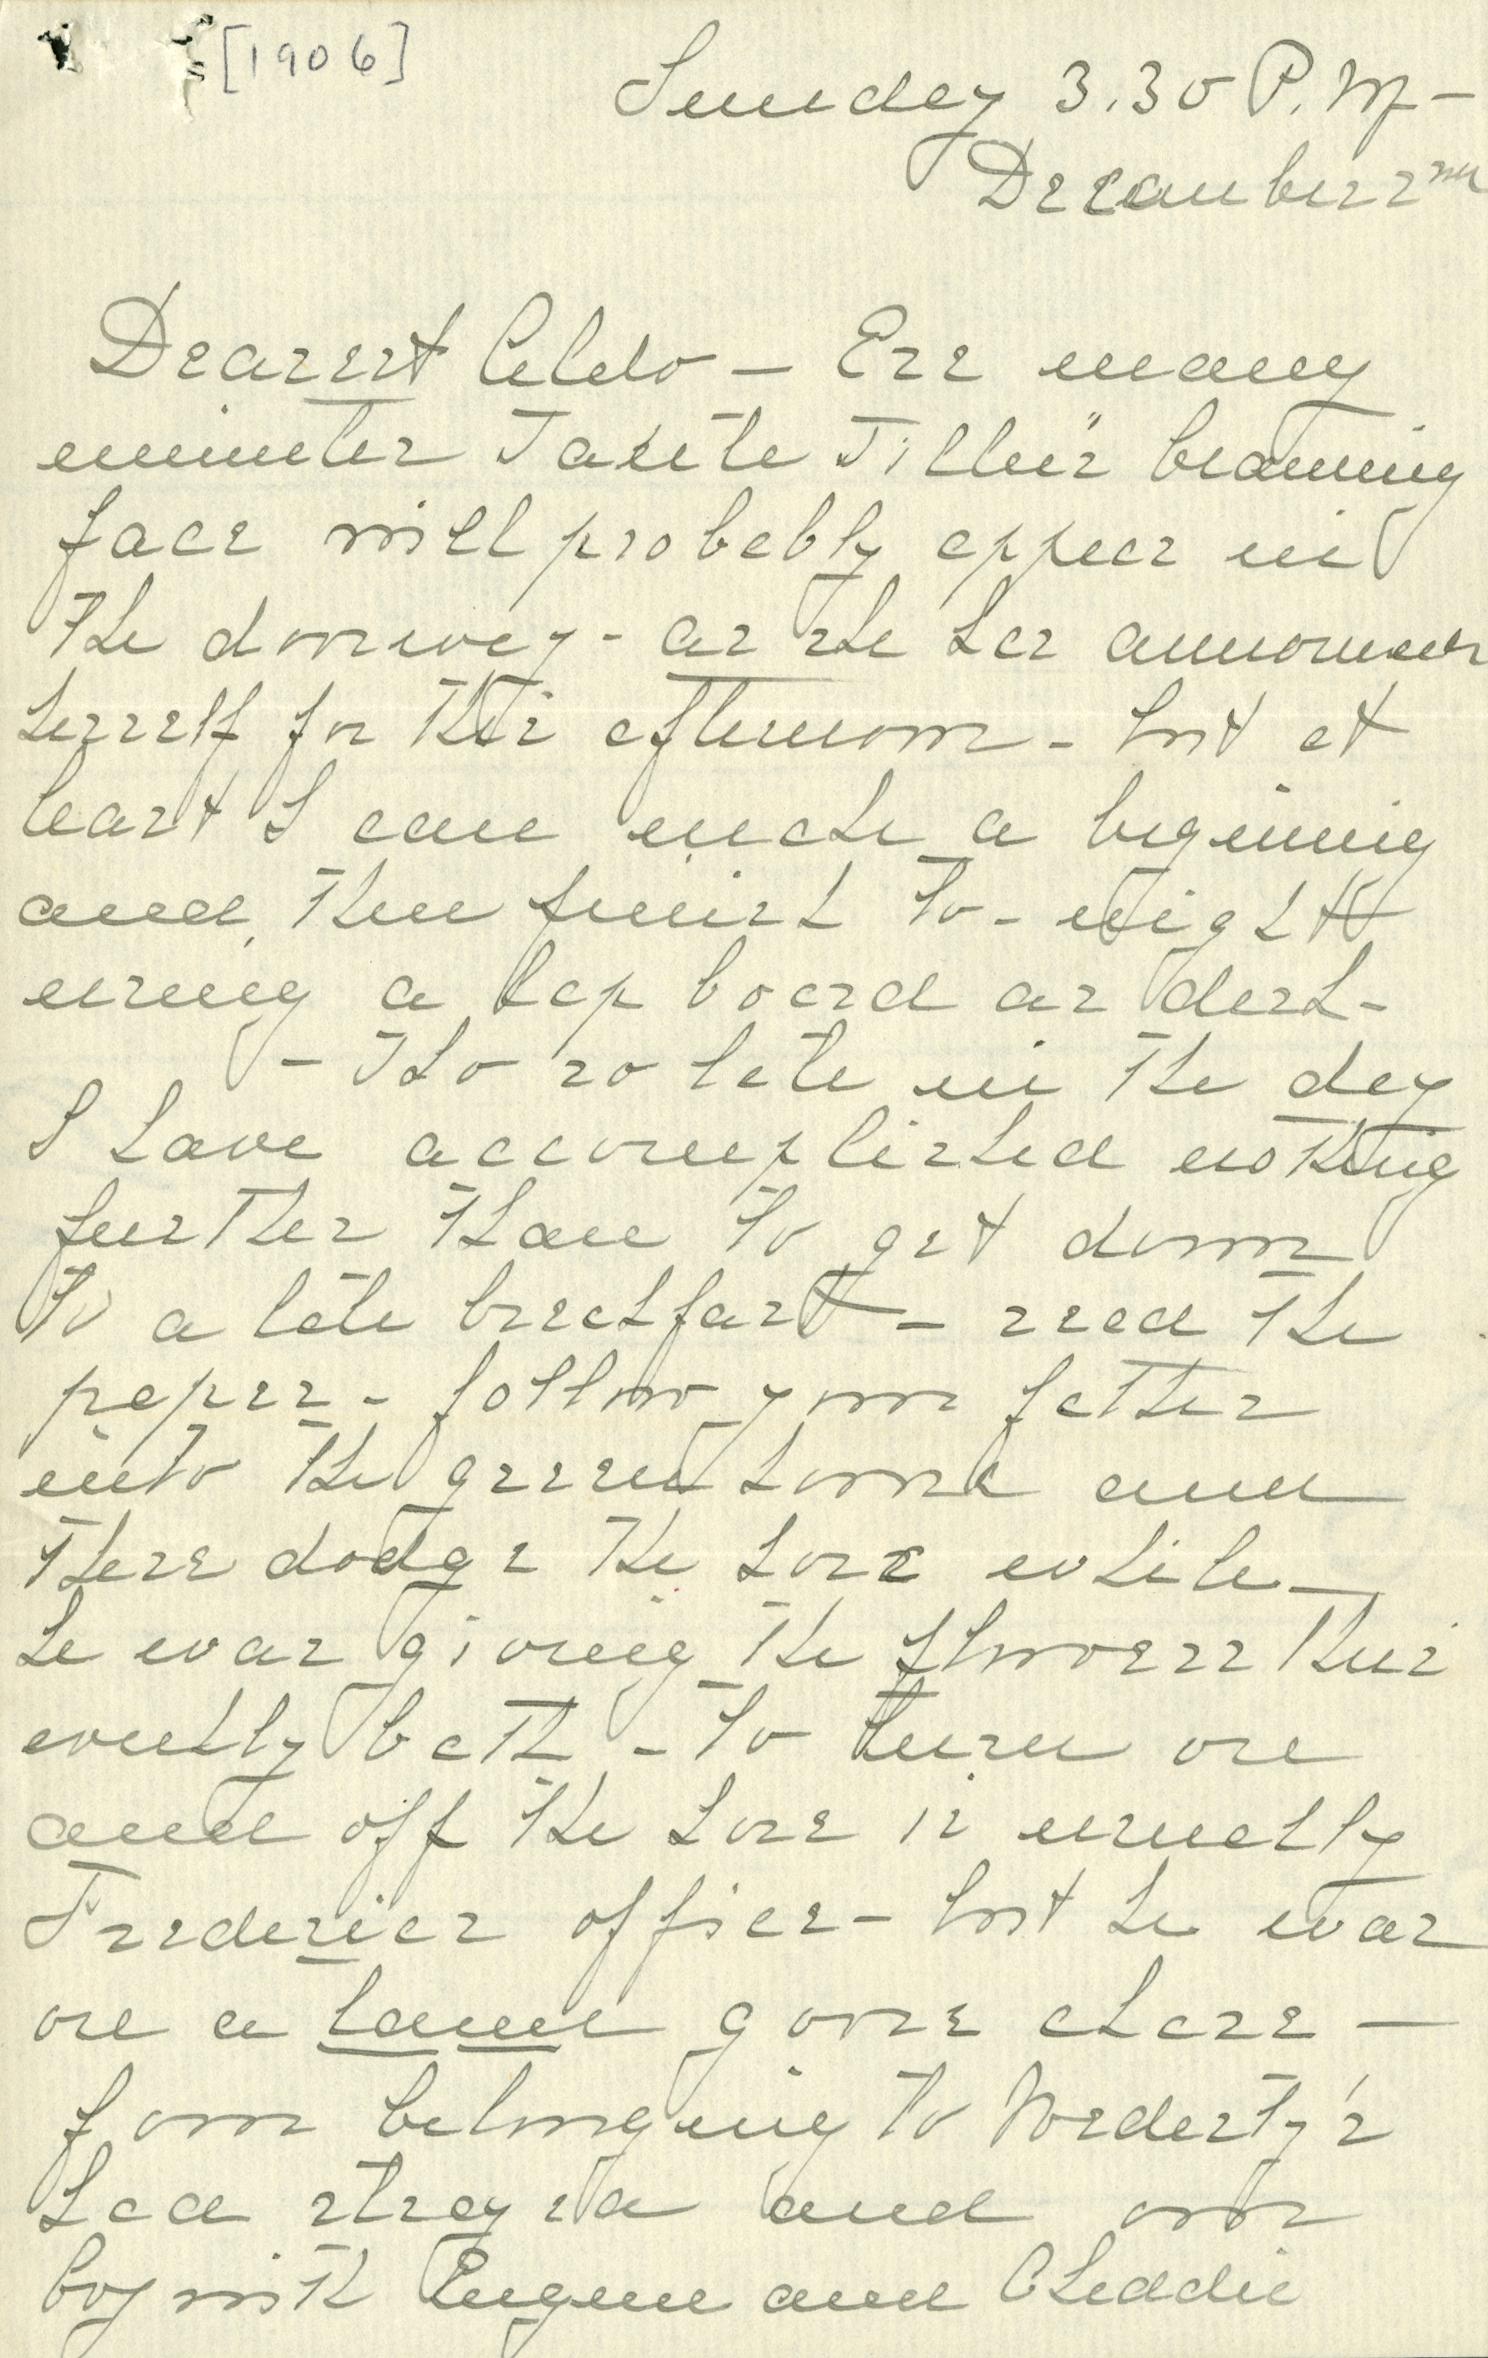 [1906]
Sunday 3.30 P.M-
December 2nd
Dearest Aldo - Ere many
minutes Tante Tillie's beaming
face will probably appear in
the doorway - as she has announced
herself for this afternoon - but at
least I can make a beginning
and then finish to-night
using a lap board as desk-
- Tho so late in the day
I have accomplished nothing
further than to get down
to a late breakfast - read the
papers - follow your father
into the greenhouse and
there dodge the hose while
he was giving the flowers their
weekly bath - to turn on
and off the hose is usually
Frederics office - but he was
on a tame goose chase -
four belonging to Wordesty's
had strayed and our
boy with Eugene and Cheddie